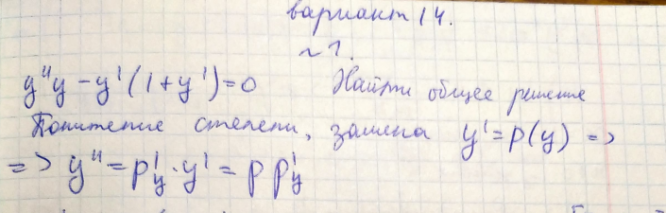 вариант 14.
~1.
y''y - y'(1+y')=0 Найти общее решение
Понижение степени, замена y'=p(y) =>
=> y''=p'y·y'=pp'y